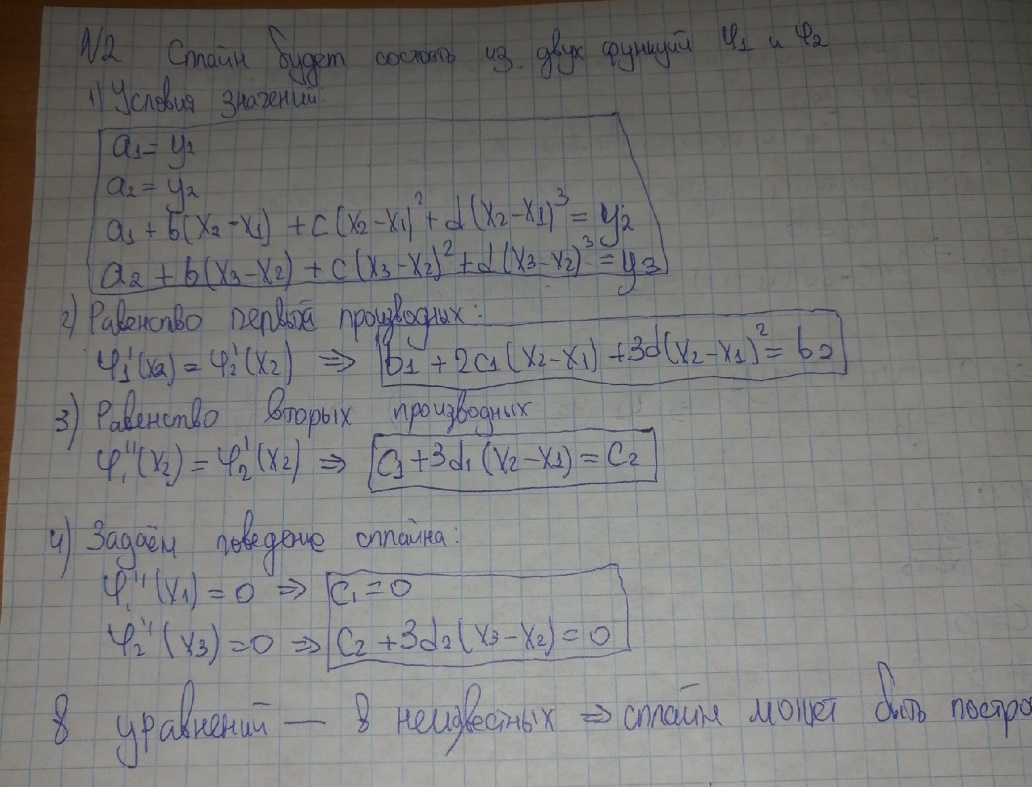 №2 Сплайн будет состоять из двух функций φ1 и φ2
1) Условия значений:
a1 = y2
a2 = y2
a1 + b(x2 - x1) + c(x2 - x1)² + d(x2 - x1)³ = y2
a2 + b(x3 - x2) + c(x3 - x2)² + d(x3 - x2)³ = y3
2) Равенство первых производных:
φ1'(x2) = φ2'(x2) ⇒ b1 + 2c1(x2 - x1) + 3d(x2 - x1)² = b2
3) Равенство вторых производных
φ1''(x2) = φ2'(x2) ⇒ c1 + 3d1(x2 - x1) = c2
4) Задаём поведение сплайна:
φ1''(x1) = 0 ⇒ c1 = 0
φ2''(x3) = 0 ⇒ c2 + 3d2(x3 - x2) = 0
8 уравнений — 8 неизвестных ⇒ сплайн может быть постро